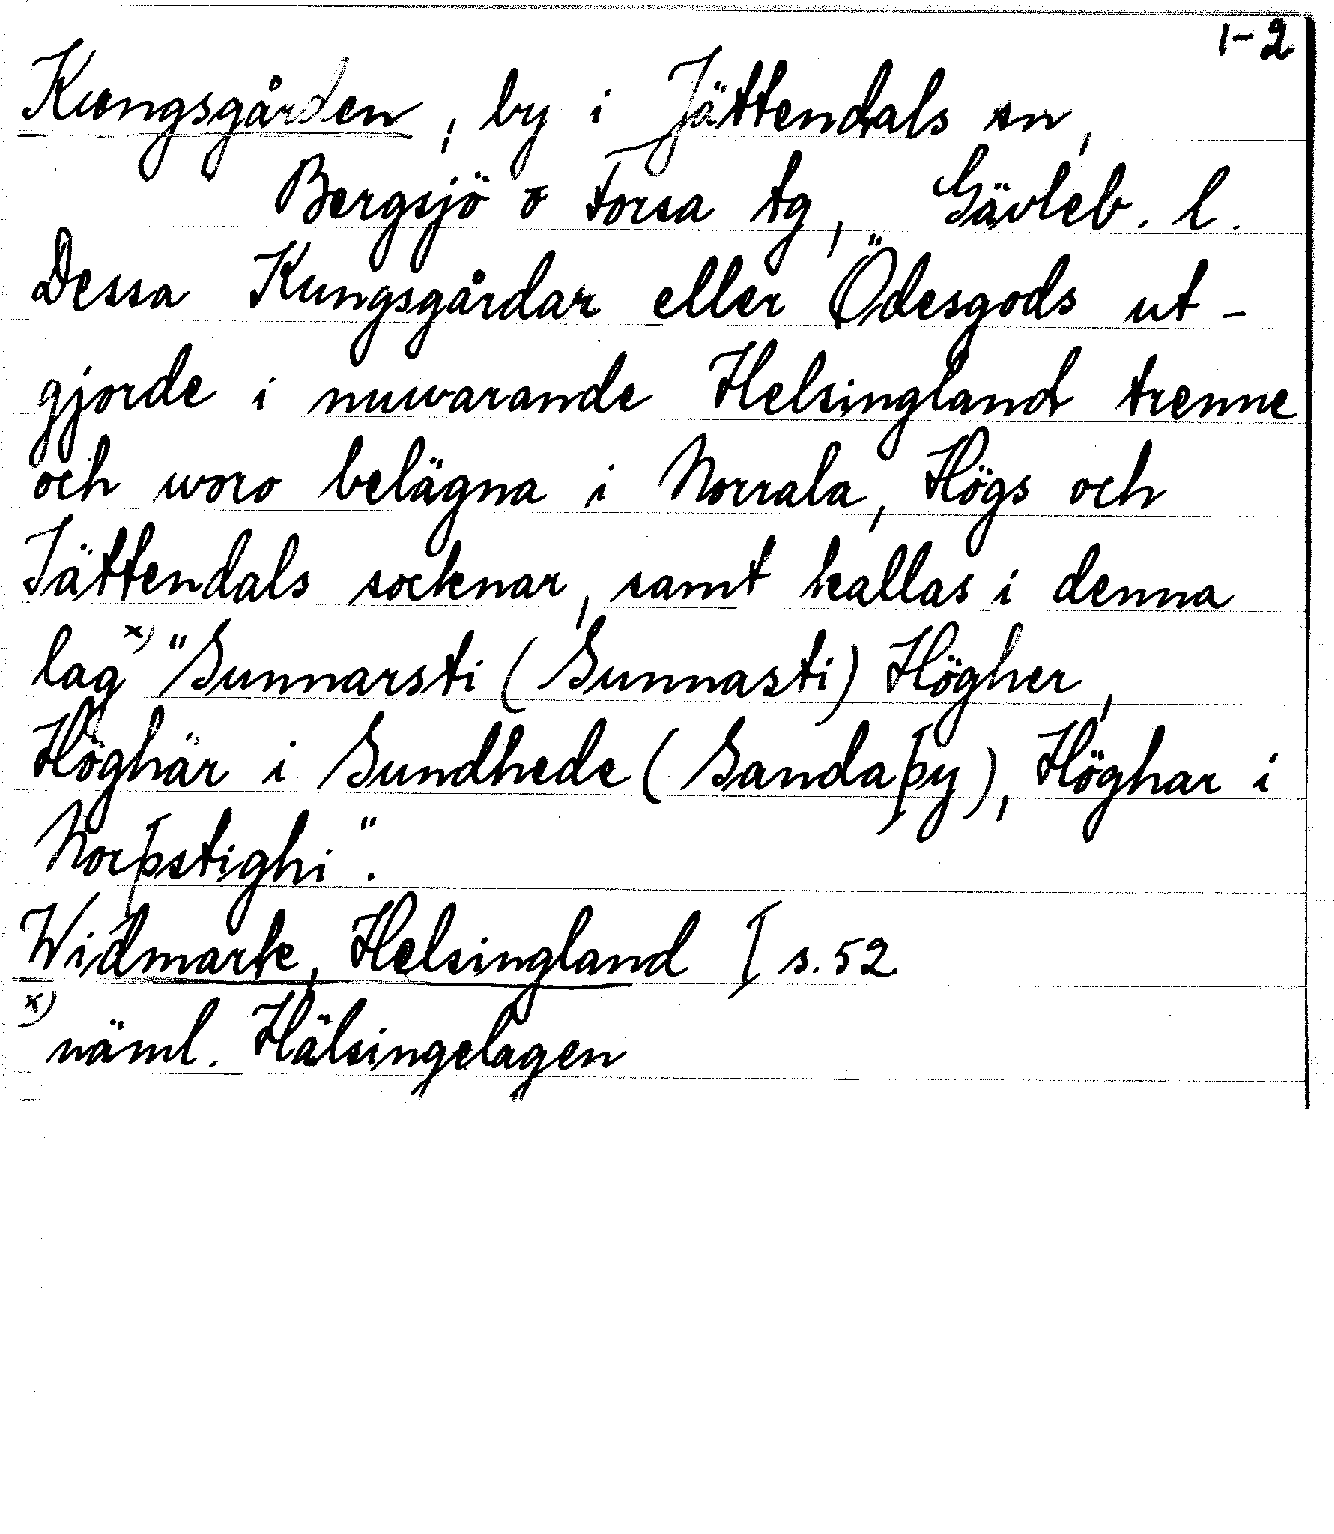 1-2
Kungsgården, by i Jättendals sn,
Bergsjö o Forsa tg, Gävleb. l.
Dessa Kungsgårdar eller Ödesgods ut-
gjorde i nuwarande Helsingland trenne
och woro belägna i Norrala, Högs och
Jättendals socknar, samt kallas i denna
lag x) "Gunnarsti (Gunnasti) Högher,
Höghär i Sundhede (Sandaþy), Höghar i
Norþstighi".
Widmark, Helsingland I s. 52
x) näml. Hälsingelagen